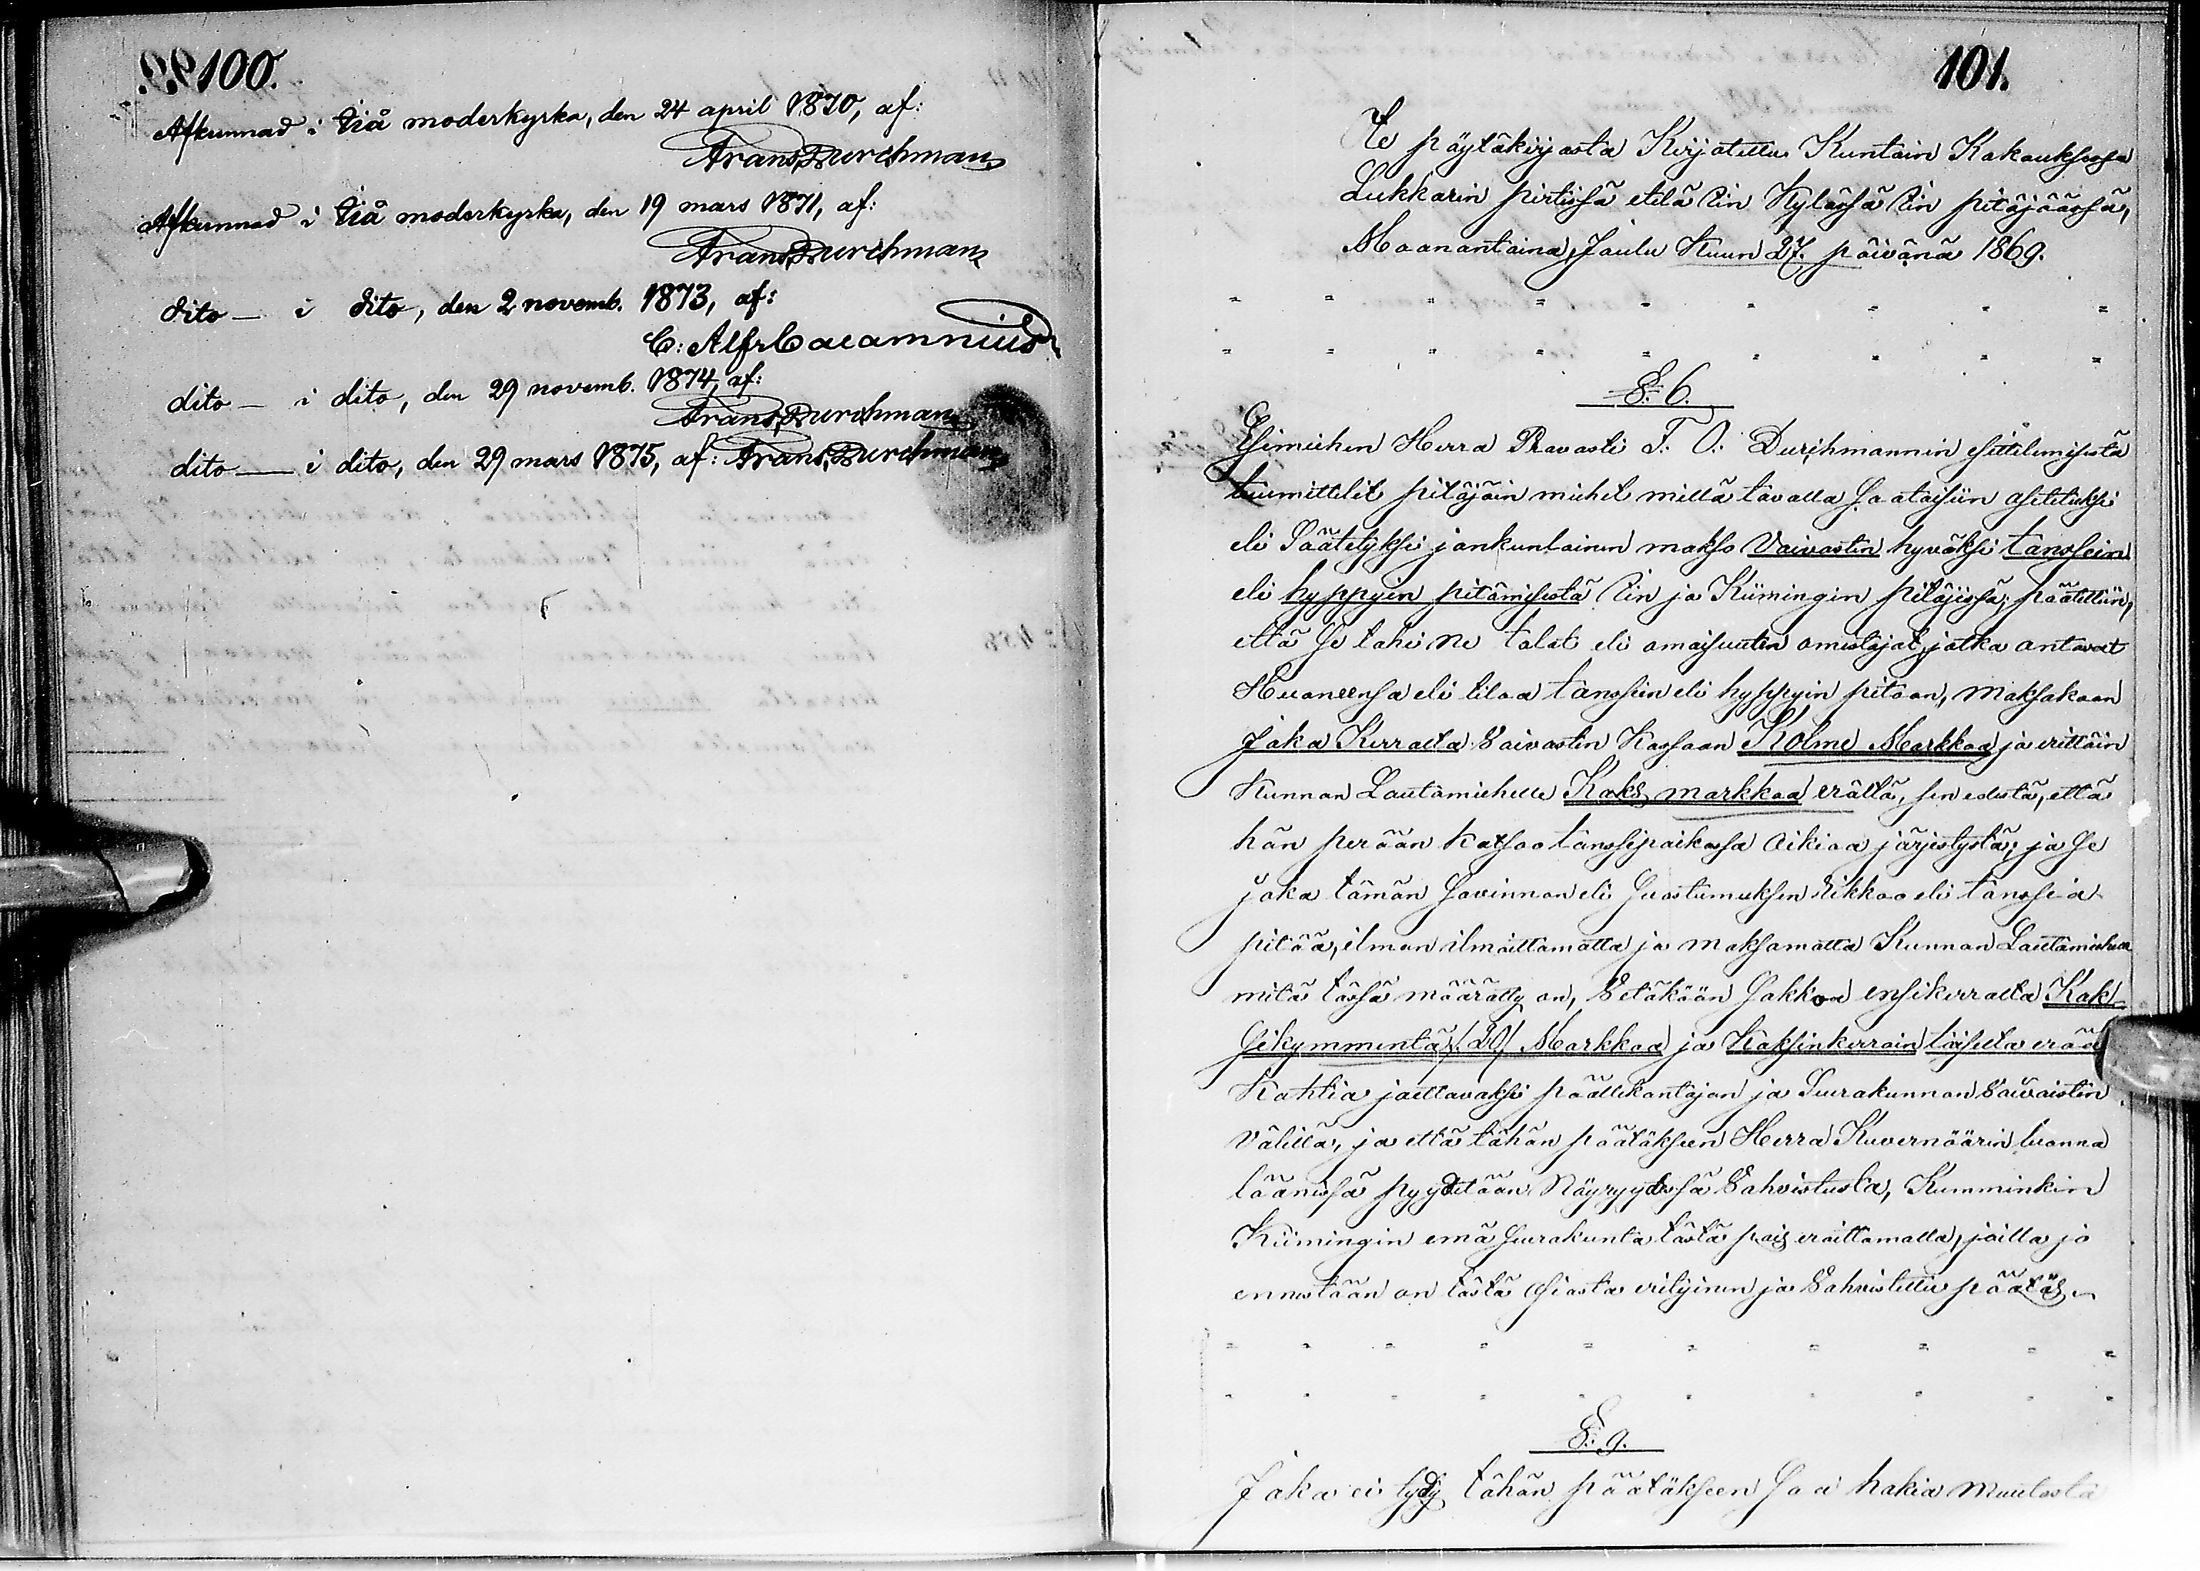 100.
Afkunnad i Iiå moderkyrka, den 24 april 1870, af:
Frans Durchman
Afkunnad i Iiå moderkyrka, den 19 mars 1871, af:
Frans Durchman
dito — i dito, den 2 novemb. 1873, af:
C: Alfr Calamnius
dito — i dito, den 29 novemb. 1874, af:
Frans Durchman
dito — i dito, den 29 mars 1875, af: Frans Durchman
101.
Ite pöytäkirjasta Kirjotettu Kuntain Kokouksessa
Lukkarin pirtissä etelä Iin Kylässä Iin pitäjäässä,
Maanantaina, Joulu Kuun 27. päivänä 1869.
" " " " " " " " "
" " " " " " " " "
§: 6.
Esimiehen Herra Rovasti F: O: Durchmannin esittelemisestä
tuumittelit pitäjäin miehet millä tavalla saataisiin asetetuksi
eli Säätetyksi jonkunlainen makso Vaivastin hyväksi tanssein
eli hyppyin pitämisestä Iin ja Kiimingin pitäjissä; päätettiin,
että se tahi ne talot eli omaisuuten omistajat, jotka antavat
Huoneensa eli tiloa tanssein eli hyppyin pitoon, maksakoon
joka Kerralta Vaivastin Kassaan Kolme Markkaa ja erittäin
Kunnan Lautamiehelle Kaks markkaa erältä, sen edestä, että
hän perään katsoo tanssipaikassa oikiaa järjestystä; ja se
joka tämän Sovinnon eli Suostumuksen Rikkoo eli tansseja
pitää, ilman ilmoittamatta ja maksamatta Kunnan Lautamiehelle
mitä tässä määrätty on, Vetäköön Sakkoa ensikerralta Kak-
sikymmentä /:20:/ Markkaa ja Kaksinkerroin toiselta erää
Kahtia jaettavaksi päällekantajan ja Seurakunnan Vaivaistin
Välillä; ja että tähän päätökseen Herra Kuvernöörin luonna
läänissä pyydetään Nöyryydessä Vahvistusta, Kumminkin
Kiimingin emä Seurakunta tästä pois eroittamalla, joilla jo
ennestään on tästä asiasta erityinen ja Vahvistettu päätös.
" " " " " " " " "
" " " " " " " " "
§: 9.
Joka ei tydy tähän päätökseen saa hakia muutosta